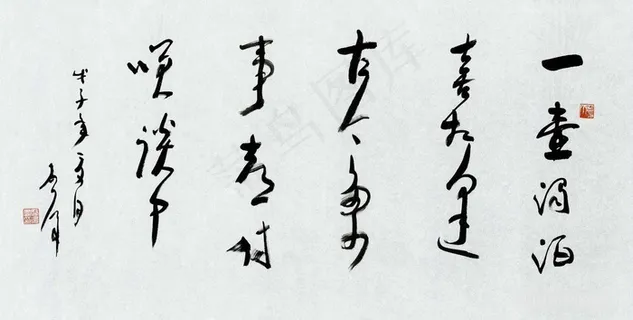 一壶浊酒
喜相逢
古今多少
事都付
咲谈中
戊子年夏月